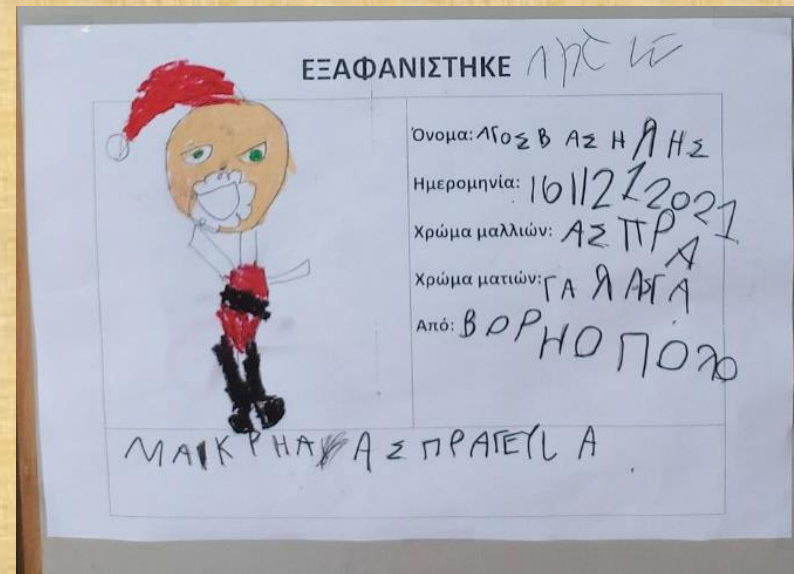 ΕΞΑΦΑΝΙΣΤΗΚΕ
Όνομα: ΑΓΟΣ ΒΑΣΗΛΗΣ
Ημερομηνία: 16112212021
Χρώμα μαλλιών: ΑΣΠΡΑ
Χρώμα ματιών: ΓΑΛΑΓΑ
Από: ΒΟΡΗΟ ΠΟλο
ΜΑΚΡΗΑ ΑΣΠΡΑ